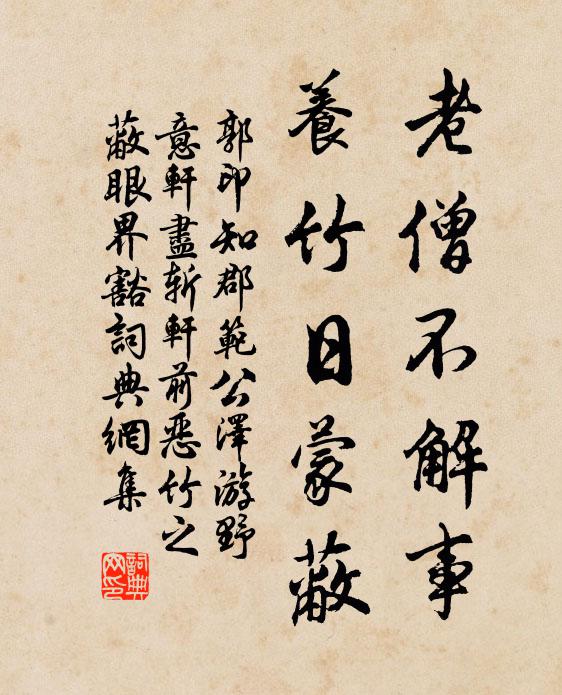 老僧不解事
養竹日蒙蔽
郭印知郡範公澤游野
意軒盡斬軒前惡竹之
蔽眼界豁詞典網集
詞典
网印